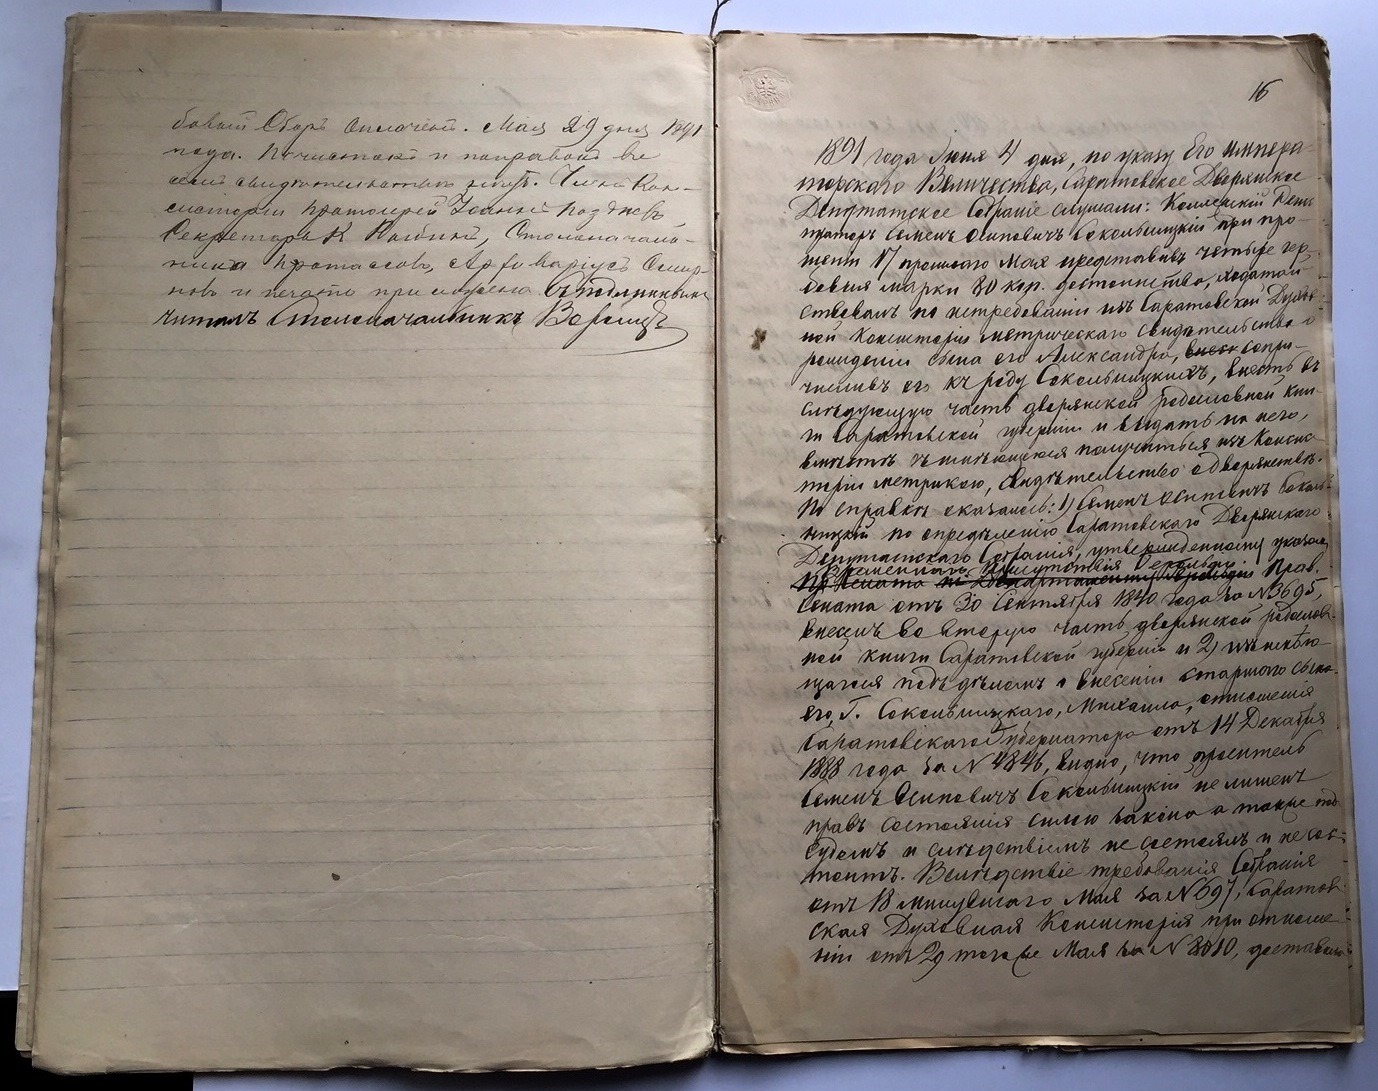 бовый Сборъ оплаченъ. Мая 29 дня 1891
года. По чисткѣ и поправкѣ
свидѣтельствѣ Членъ Кон-
систоріи Протоіерей Іоаннъ Поздневъ
Секретарь К Столоначаль-
никъ Протасовъ, Архиваріусъ Смир-
новъ и печать приложена Съ подлиннымъ
читалъ Столоначальникъ
16
1891 года Іюня 4 дня, по указу Его Импера-
торскаго Величества, Саратовское Дворянское
Депутатское Собраніе слушали: Коллежскій Реги-
страторъ Семенъ Осиповичъ Сокольницкій при про-
шеніи 17 прошлаго Мая представивъ четыре гер-
бовыя марки 80 коп. достоинства, ходатай-
ствовалъ по истребованіи изъ Саратовской Духов-
ной Консисторіи метрическаго свидѣтельства о
рожденіи сына его Александра, сопри-
числивъ его къ роду Сокольницкихъ, внесть въ
слѣдующую часть дворянской родословной кни-
ги Саратовской губерніи и выдать на него,
вмѣстѣ съ имѣющеюся получиться изъ Консис-
торіи метрикою, свидѣтельство о дворянствѣ.
По справкѣ оказалось: 1) Семенъ Осиповичъ Соколь-
ницкій по опредѣленію Саратовскаго Дворянскаго
Депутатскаго Собранія, утвержденному указомъ
Временнаго Присутствія Герольдіи
Прав.
Сената отъ 30 Сентября 1840 года за № 3695,
внесенъ во вторую часть дворянской родослов-
ной книги Саратовской губерніи и 2) изъ имѣю-
щагося подъ дѣломъ о внесеніи старшаго сына
его, Г. Сокольницкаго, Михаила, отношенія
Саратовскаго Губернатора отъ 14 Декабря
1888 года за № 4846, видно, что проситель
Семенъ Осиповичъ Сокольницкій не лишенъ
правъ состоянія силою закона а также подъ
судомъ и слѣдствіемъ не состоялъ и не сос-
тоитъ. Вслѣдствіе требованія Собранія
отъ 18 минувшаго Мая за № 697, Саратов-
ская Духовная Консисторія при отноше-
ніи отъ 29 того же Мая за № 8010, доставила